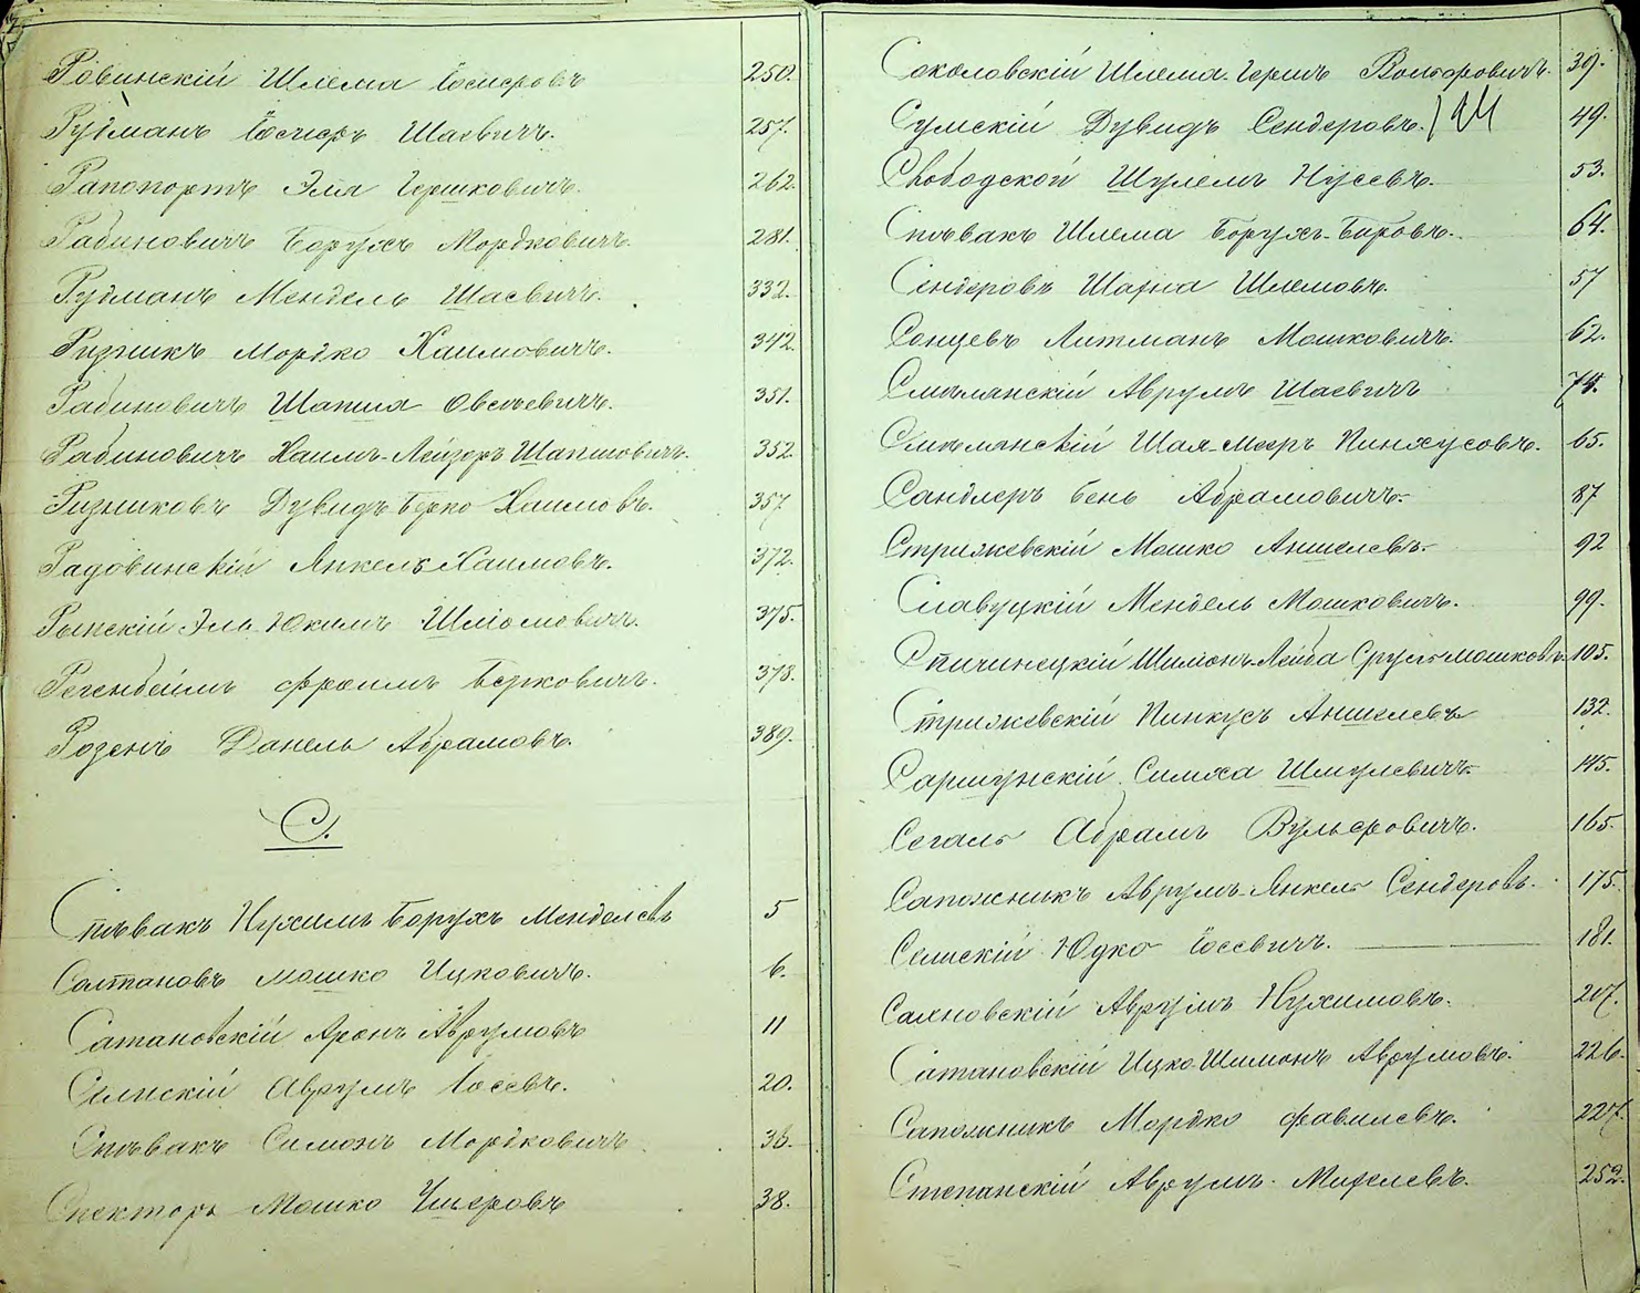 Ровинскій Шлема Іосифовъ 250.
Рудманъ Іосифъ Шаевичъ. 257.
Рапопортъ Эля Гершковичъ. 262.
Рабиновичъ Борухъ Мордковичъ. 281.
Рудманъ Мендель Шаевичъ. 332.
Ризникъ Мордко Хаимовичъ. 342.
Рабиновичъ Шапша Овсеевичъ. 351.
Рабиновичъ Хаимъ-Лейзоръ Шапшовичъ. 352.
Ризниковъ Дувидъ Берко Хаимовъ. 357.
Радовинскій Янкель Хаимовъ. 372.
Рыпскій Эль Юкимъ Шліомовичъ. 375.
Регенбеймъ Фроимъ Берковичъ. 378.
Розенъ Данель Абрамовъ. 389.
С.
Спѣвакъ Нухимъ Борухъ Менделевъ 5
Салтановъ Мошко Ицковичъ. 6.
Сатановскій Аронъ Аврумовъ 11
Селискій Аврумъ Іосевъ. 20.
Спѣвакъ Симонъ Мордковичъ. 36.
Спекторъ Мошко Ушеровъ 38.
Соколовскій Шлема-Гершъ Волфовичъ. 39.
Сумскій Дувидъ Сендеровъ. 49.
Свободской Шулемъ Нусевъ. 53.
Спѣвакъ Шлема Борухъ-Беровъ. 64.
Сендеровъ Шафна Шлемовъ. 57
Сонцевъ Литманъ Мошковичъ. 62.
Смѣлянскій Аврумъ Шаевичъ 74.
Смѣлянскій Шая-Мееръ Пинхусовъ. 65.
Сандлеръ Бень Абрамовичъ. 87
Стрижевскій Мошко Аншелевъ. 92
Славуцкій Мендель Мошковичъ. 99.
Спичинецкій Шимонъ-Лейба Сруль Мошковъ. 105.
Стрижевскій Пинкусъ Аншелевъ 132.
Саршунскій Симха Шмулевичъ. 145.
Сегаль Абрамъ Вульфовичъ. 165.
Сапожникъ Аврумъ-Янкель Сендеровъ. 175.
Селискій Юдко Іосевичъ. 181.
Сахновскій Аврумъ Нухимовъ. 207.
Сатановскій Ицко-Шимонъ Аврумовъ. 226.
Сапожникъ Мордко Фавишевъ. 227.
Степанскій Аврумъ Михелевъ. 252.